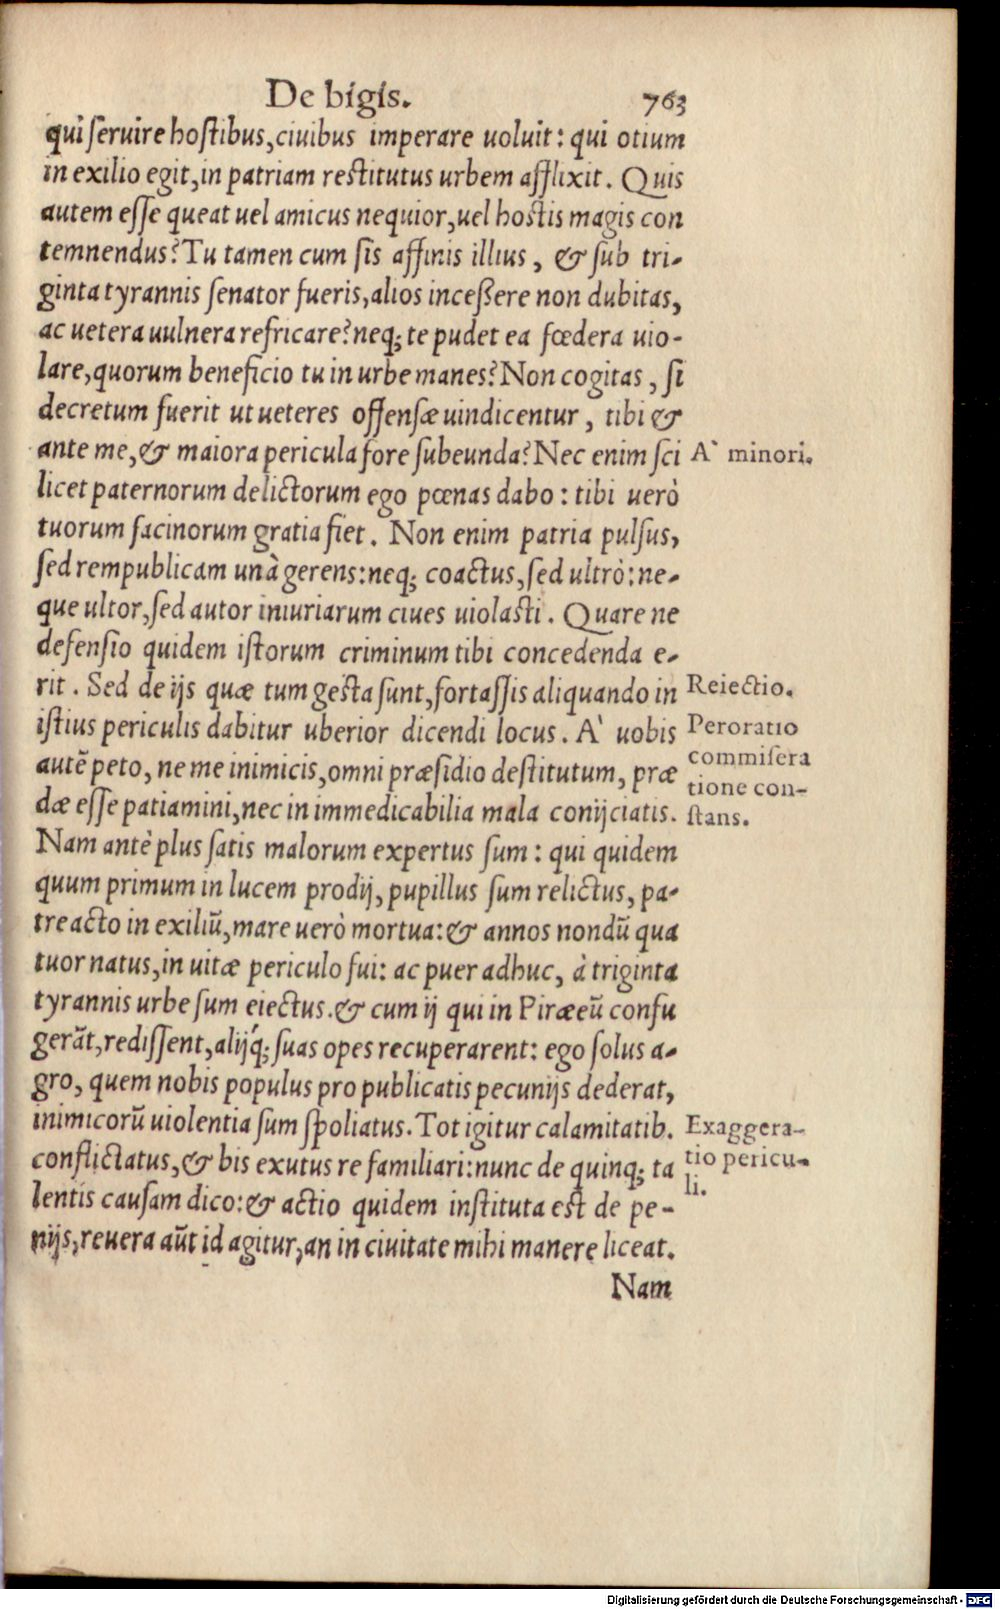 De bigis. 763
qui seruire hostibus, ciuibus imperare uoluit: qui otium
in exilio egit, in patriam restitutus urbem afflixit. Quis
autem esse queat uel amicus nequior, uel hostis magis con
temnendus? Tu tamen cum sis affinis illius, & sub tri-
ginta tyrannis senator fueris, alios incessere non dubitas,
ac uetera uulnera refricare? neq; te pudet ea fœdera uio-
lare, quorum beneficio tu in urbe manes? Non cogitas, si
decretum fuerit ut ueteres offensæ uindicentur, tibi &
ante me, & maiora pericula fore subeunda? Nec enim sci
À minori.
licet paternorum delictorum ego pœnas dabo: tibi uerò
tuorum facinorum gratia fiet. Non enim patria pulsus,
sed rempublicam unà gerens: neq; coactus, sed ultrò: ne-
que ultor, sed autor iniuriarum ciues uiolasti. Quare ne
defensio quidem istorum criminum tibi concedenda e-
rit. Sed de ijs quæ tum gesta sunt, fortassis aliquando in
Reiectio.
istius periculis dabitur uberior dicendi locus. À uobis
autẽ peto, ne me inimicis, omni præsidio destitutum, præ
dæ esse patiamini, nec in immedicabilia mala conijciatis.
Peroratio
commisera
tione con-
stans.
Nam antè plus satis malorum expertus sum: qui quidem
quum primum in lucem prodij, pupillus sum relictus, pa-
tre acto in exiliũ, mare uerò mortua: & annos nondũ qua
tuor natus, in uitæ periculo fui: ac puer adhuc, à triginta
tyrannis urbe sum eiectus. & cum ij qui in Piræeũ confu
gerãt, redissent, alijq́; suas opes recuperarent: ego solus a-
gro, quem nobis populus pro publicatis pecunijs dederat,
inimicorũ uiolentia sum spoliatus. Tot igitur calamitatib.
conflictatus, & bis exutus re familiari: nunc de quinq; ta
lentis causam dico: & actio quidem instituta est de pe-
Exaggera-
tio pericu-
li.
nijs, reuera aũt id agitur, an in ciuitate mihi manere liceat.
Nam
Digitalisierung gefördert durch die Deutsche Forschungsgemeinschaft - DFG